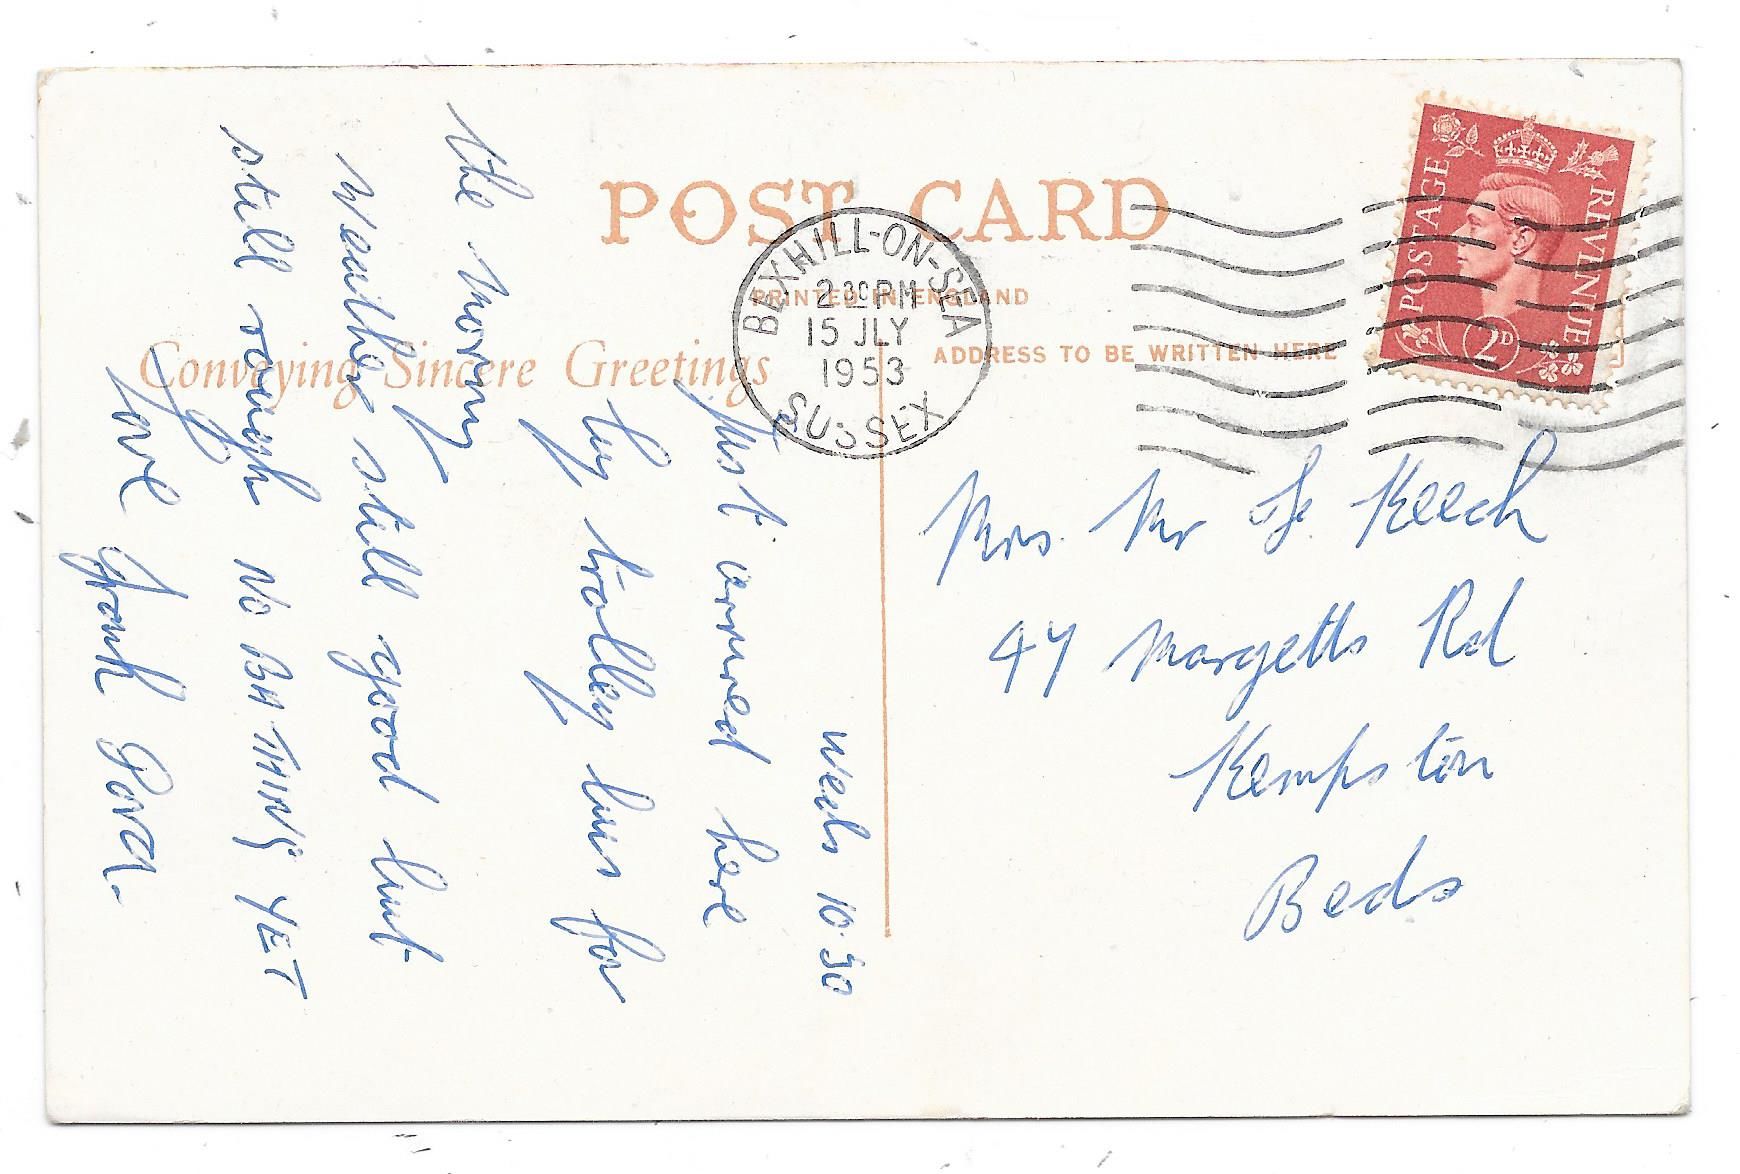 POST CARD
PRINTED IN ENGLAND
ADDRESS TO BE WRITTEN HERE
Conveying Sincere Greetings
BEXHILL-ON-SEA
2 30 PM
15 JLY
1953
SUSSEX
POSTAGE
REVENUE
2D
Weds 10.30
Just arrived here
by trolley bus for
the morning
Weather still good but
still rough NO BATHING YET
Love Frank
Mrs. Mr Keech
47 Margetts Rd
Kempston
Beds